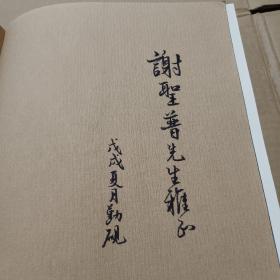 謝聖普先生雅正
戊戌夏月勤硯